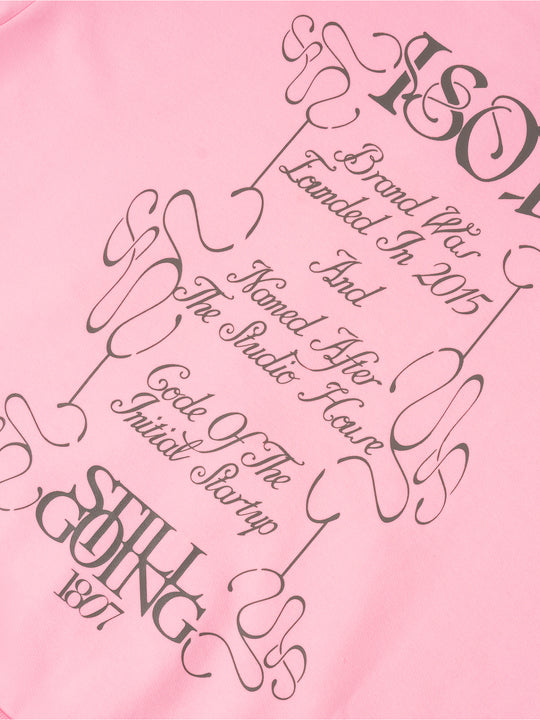 Brand Was
Founded In 2015
And
Named After
The Studio House
Code Of The
Initial Startup
STILL
GOING
1807